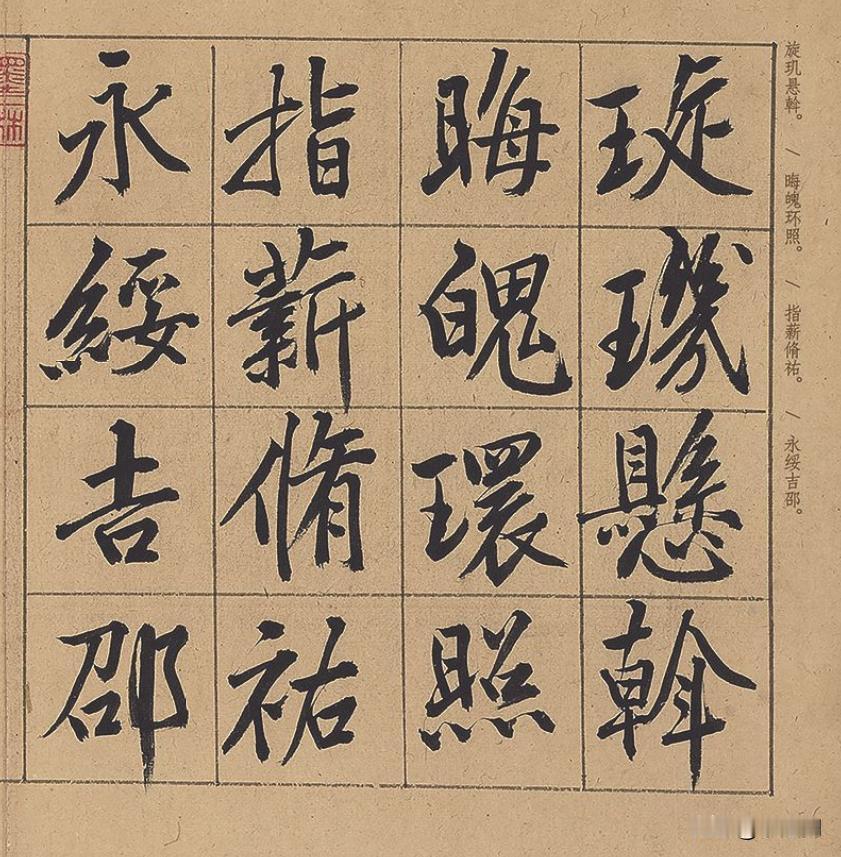 旋玑悬斡。 / 晦魄环照。 / 指薪脩祐。 / 永绥吉邵。
琁璣懸斡
晦魄環照
指薪脩祐
永綏吉邵